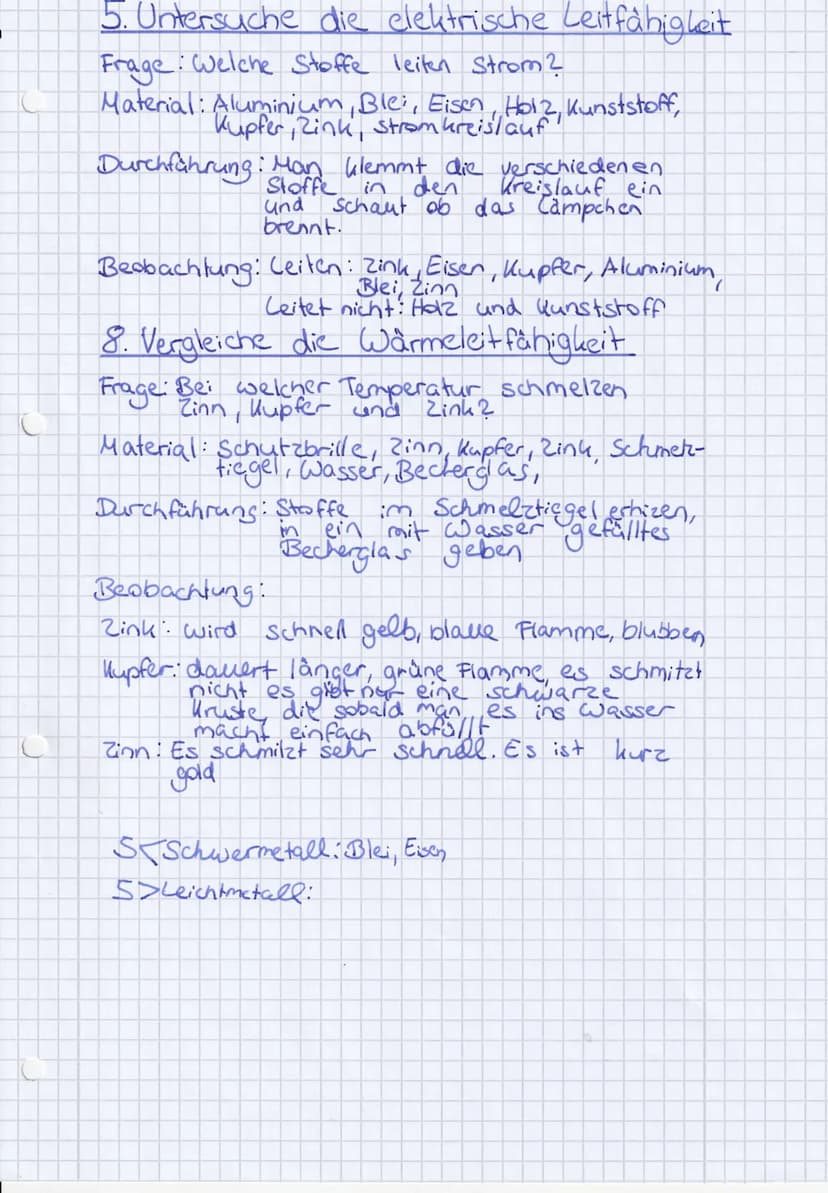 5. Untersuche die elektrische Leitfähigkeit
Frage: Welche Stoffe leiten Strom?
Material: Aluminium, Blei, Eisen, Holz, Kunststoff,
Kupfer, Zink, Stromkreislauf
Durchführung: Man klemmt die verschiedenen
Stoffe in den Kreislauf ein
und schaut ob das Lämpchen
brennt.
Beobachtung: Leiten: Zink, Eisen, Kupfer, Aluminium,
Blei, Zinn
Leitet nicht: Holz und Kunststoff
8. Vergleiche die Wärmeleitfähigkeit
Frage: Bei welcher Temperatur schmelzen
Zinn, Kupfer und Zink?
Material: Schutzbrille, Zinn, Kupfer, Zink, Schmelz-
tiegel, Wasser, Becherglas,
Durchführung: Stoffe im Schmelztiegel erhizen,
in ein mit Wasser gefülltes
Becherglas geben
Beobachtung:
Zink: wird schnell gelb, blaue Flamme, blubben
Kupfer: dauert länger, grüne Flamme, es schmitzt
nicht es gibt nur eine schwarze
Kruste, die sobald man es ins Wasser
macht einfach abfällt
Zinn: Es schmilzt sehr schnell. Es ist kurz
gold
5<Schwermetall: Blei, Eisen
5>Leichtmetall: